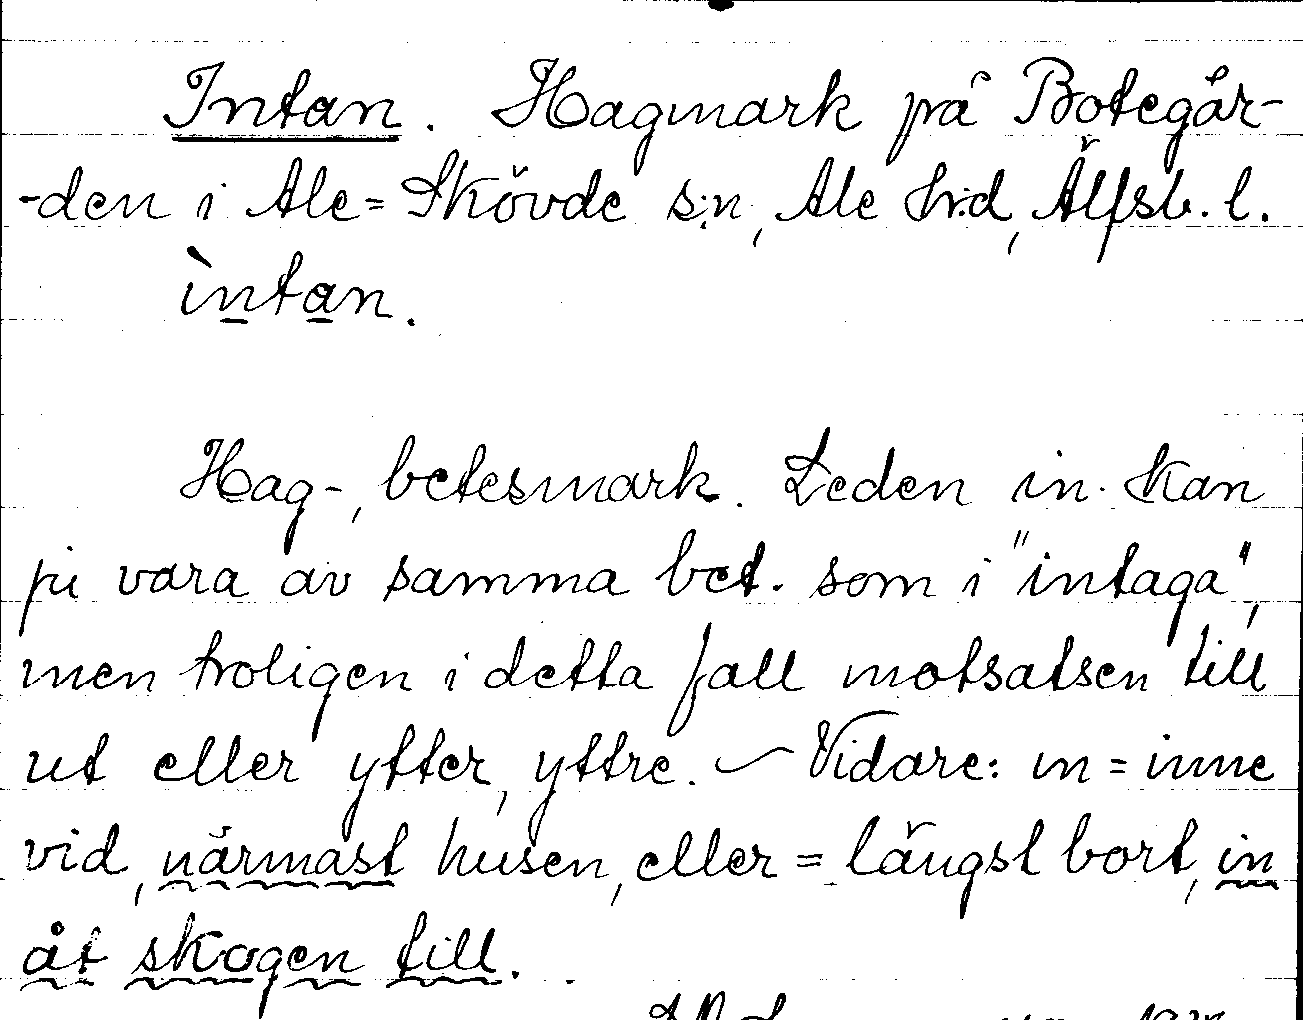 Intan. Hagmark på Botegår-
-den i Ale=Skövde s:n, Ale hr:d, Älfsb. l.
ìntan.
Hag-, betesmark. Leden in- kan
ju vara av samma bet. som i "intaga",
men troligen i detta fall motsatsen till
ut eller ytter, yttre. — Vidare: in = inne
vid, närmast husen, eller = längst bort, in
åt skogen till.